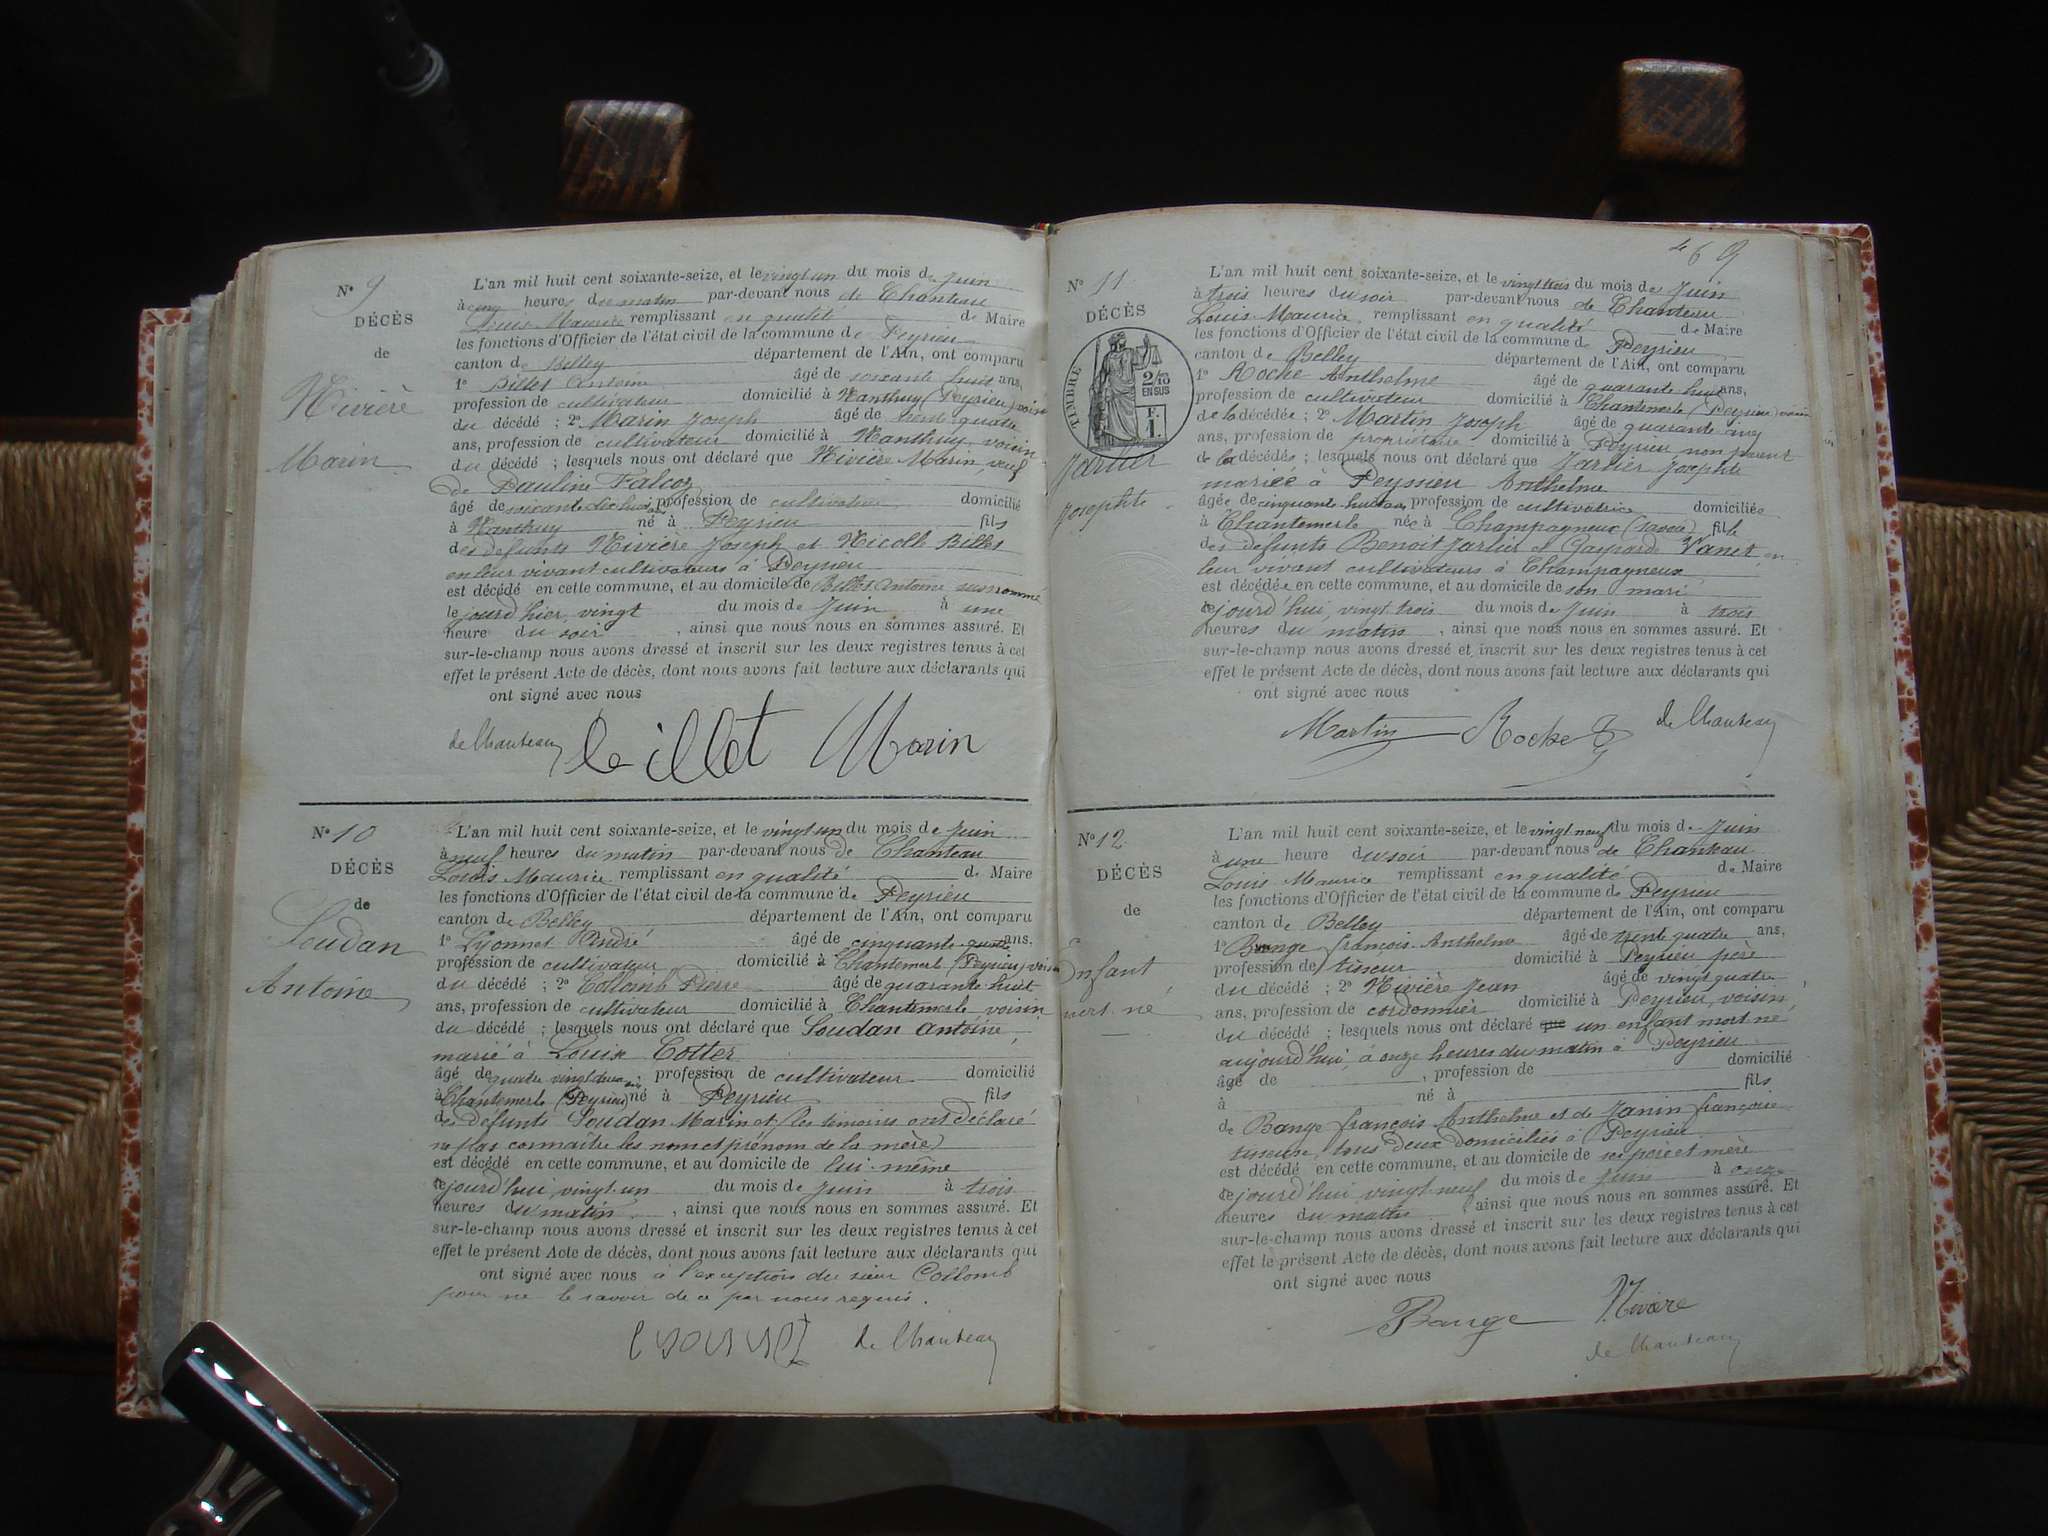 N° 9
DÉCÈS
de
Rivière
Marin
L'an mil huit cent soixante-seize, et le vingt un du mois de Juin
à cinq heures du matin par-devant nous de Chanteau
Louis Maurice remplissant en qualité de Maire
les fonctions d'Officier de l'état civil de la commune de Peyrieu
canton de Belley département de l'Ain, ont comparu
1° Billet Antoine âgé de soixante huit ans,
profession de cultivateur domicilié à Nanthuy (Peyrieu) voisin
du décédé ; 2° Marin Joseph âgé de trente quatre
ans, profession de cultivateur domicilié à Nanthuy, voisin
du décédé ; lesquels nous ont déclaré que Rivière Marin, veuf
de Pauline Falcoz
âgé de soixante dix huit ans, profession de cultivateur domicilié
à Nanthuy né à Peyrieu fils
des défunts Rivière Joseph et Nicolle Billet
en leur vivant cultivateurs à Peyrieu
est décédé en cette commune, et au domicile de Billet Antoine susnommé
le jourd'hier, vingt du mois de Juin à une
heure du soir , ainsi que nous nous en sommes assuré. Et
sur-le-champ nous avons dressé et inscrit sur les deux registres tenus à cet
effet le présent Acte de décès, dont nous avons fait lecture aux déclarants qui
ont signé avec nous
de Chanteau Billet Marin
N° 10
DÉCÈS
de
Soudan
Antoine
L'an mil huit cent soixante-seize, et le vingt un du mois de Juin
à neuf heures du matin par-devant nous de Chanteau
Louis Maurice remplissant en qualité de Maire
les fonctions d'Officier de l'état civil de la commune de Peyrieu
canton de Belley département de l'Ain, ont comparu
1° Lyonnet André âgé de cinquante quatre ans,
profession de cultivateur domicilié à Chantemerle (Peyrieu) voisin
du décédé ; 2° Collomb Pierre âgé de quarante huit
ans, profession de cultivateur domicilié à Chantemerle, voisin
du décédé ; lesquels nous ont déclaré que Soudan Antoine,
marié à Louise Cotter
âgé de quatre vingt deux ans, profession de cultivateur domicilié
à Chantemerle (Peyrieu) né à Peyrieu fils
des défunts Soudan Marin et (les témoins ont déclaré
ne pas connaître les nom et prénom de la mère)
est décédé en cette commune, et au domicile de lui-même
cejourd'hui, vingt-un du mois de Juin à trois
heures du matin , ainsi que nous nous en sommes assuré. Et
sur-le-champ nous avons dressé et inscrit sur les deux registres tenus à cet
effet le présent Acte de décès, dont nous avons fait lecture aux déclarants qui
ont signé avec nous à l'exception du sieur Collomb
pour ne le savoir de ce par nous requis.
Lyonnet de Chanteau
469
N° 11
DÉCÈS
TIMBRE
2/10
EN SUS
F.
1.
Jarlier
Josephte
L'an mil huit cent soixante-seize, et le vingt trois du mois de Juin
à trois heures du soir par-devant nous de Chanteau
Louis Maurice remplissant en qualité de Maire
les fonctions d'Officier de l'état civil de la commune de Peyrieu
canton de Belley département de l'Ain, ont comparu
1° Roche Anthelme âgé de quarante huit ans,
profession de cultivateur domicilié à Chantemerle (Peyrieu) voisin
de la décédée ; 2° Martin Joseph âgé de quarante cinq
ans, profession de propriétaire domicilié à Peyrieu non parent
de la décédée ; lesquels nous ont déclaré que Jarlier Josephte
mariée à Peyssieu Anthelme
âgée de cinquante huit ans, profession de cultivatrice domiciliée
à Chantemerle née à Champagneux (Savoie) fille
des défunts Benoit Jarlier et Gasparde Vanet, en
leur vivant cultivateurs à Champagneux
est décédée en cette commune, et au domicile de son mari
cejourd'hui, vingt trois du mois de Juin à trois
heures du matin , ainsi que nous nous en sommes assuré. Et
sur-le-champ nous avons dressé et inscrit sur les deux registres tenus à cet
effet le présent Acte de décès, dont nous avons fait lecture aux déclarants qui
ont signé avec nous
Martin Roche de Chanteau
N° 12
DÉCÈS
de
Enfant
mort né
L'an mil huit cent soixante-seize, et le vingt neuf du mois de Juin
à une heure du soir par-devant nous de Chanteau
Louis Maurice remplissant en qualité de Maire
les fonctions d'Officier de l'état civil de la commune de Peyrieu
canton de Belley département de l'Ain, ont comparu
1° Bange françois Anthelme âgé de trente quatre ans,
profession de tisseur domicilié à Peyrieu père
du décédé ; 2° Rivière Jean âgé de vingt quatre
ans, profession de cordonnier domicilié à Peyrieu, voisin
du décédé ; lesquels nous ont déclaré que un enfant mort né
aujourd'hui, à onze heures du matin à Peyrieu
âgé de , profession de domicilié
à né à fils
de Bange françois Anthelme et de Janin françoise
tisseuse, tous deux domiciliés à Peyrieu
est décédé en cette commune, et au domicile de ses père et mère
cejourd'hui vingt-neuf du mois de Juin à onze
heures du matin , ainsi que nous nous en sommes assuré. Et
sur-le-champ nous avons dressé et inscrit sur les deux registres tenus à cet
effet le présent Acte de décès, dont nous avons fait lecture aux déclarants qui
ont signé avec nous
Bange J. Rivière
de Chanteau